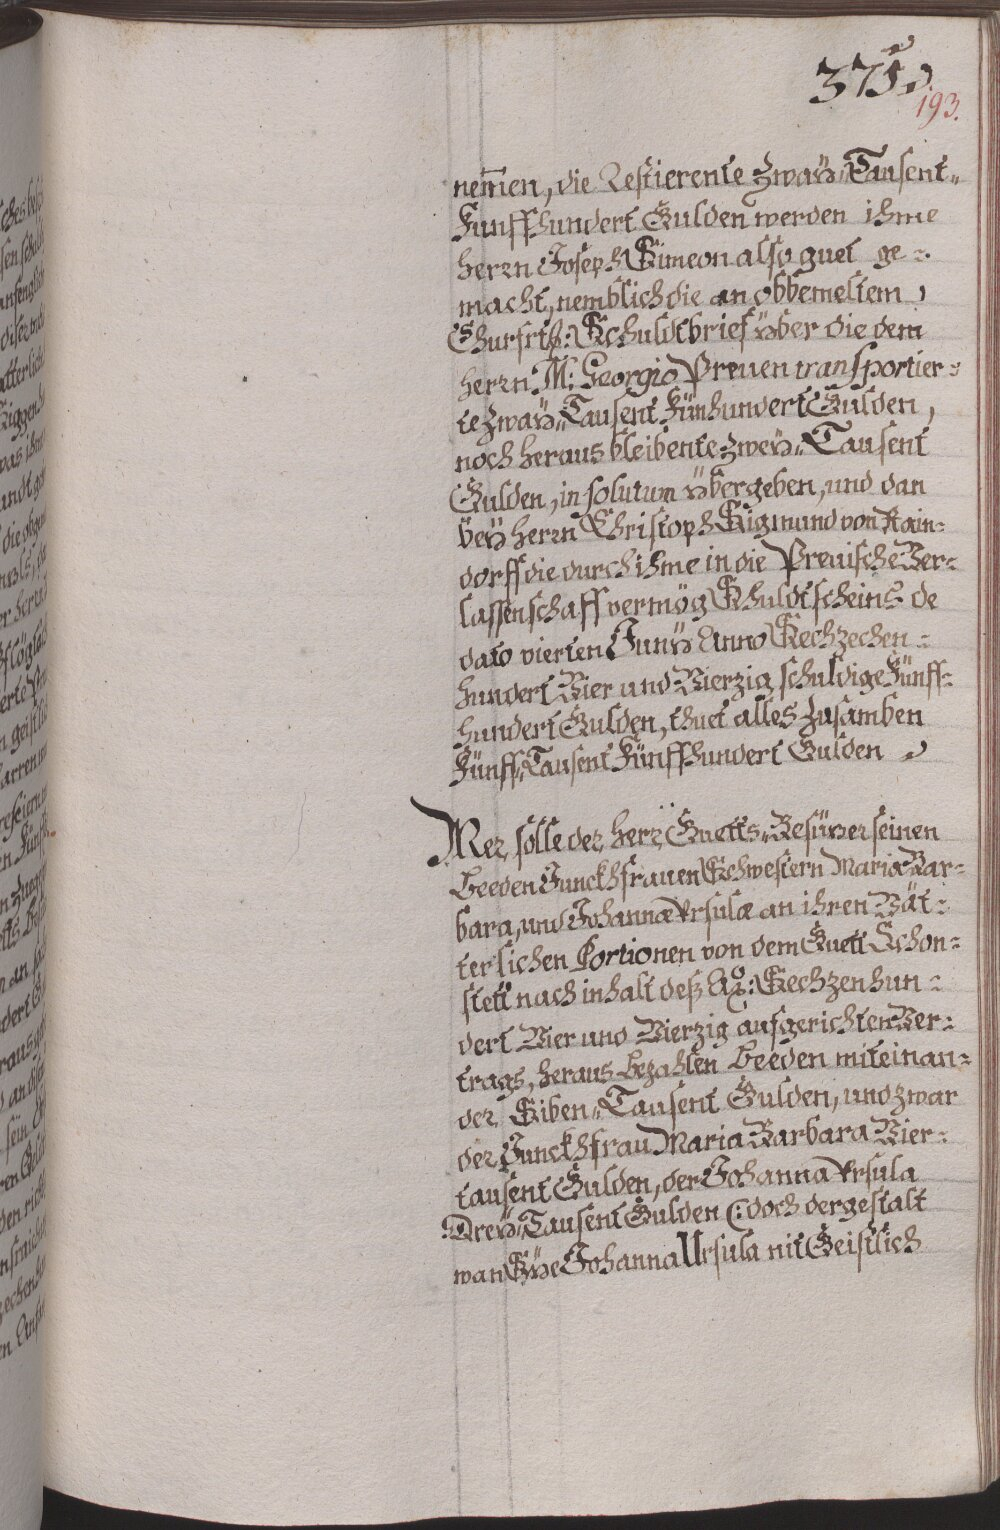 375.
193.
nem̄en, die Restierente zwaÿ„Tausent„
Funffhundert Gulden werden ihme
herrn Joseph Simeon also guet ge-:
macht, nemblich die an obbemeltem
Churfrtl: Schuldtbrief yber die dem
herrn M: Georgio Preuen transportier-:
te zwaÿ„Tausent Fünhundert Gulden,
noch heraus bleibente zweÿ„Tausent
Gulden, in solutum ybergeben, und dan
beÿ herrn Christoph Sigmund von Rain-:
dorff die durch ihme in die Preuische Ver-:
lassenschafft vermög Schuldtscheins de
dato vierten Junÿ Anno Sechzechen-:
hundert Vier und Vierzig schuldige Fünff-:
hundert Gulden, thuet alles zusamben
Fünff„Tausent Fünffhundert Gulden
Mer solle der herr Guetts„Besüzer seinen
beeden Junckhfrauen Schwestern Maria Bar-:
bara, und Johannæ Ursulæ an ihren Vät-:
terlichen Portionen von dem Guett Schon-:
stett nach inhalt deß Ao: Sechzenhun-:
dert Vier und Vierzig aufgerichten Ver-:
trags, heraus bezahlen beeden miteinan-:
der Siben„Tausent Gulden, und zwar
der Junckhfrau Maria Barbara Vier-:
tausent Gulden, der Johanna Ursula
Dreÿ„Tausent Gulden (: doch dergestalt
wan Sÿe Johanna Ursula nit Geistlich